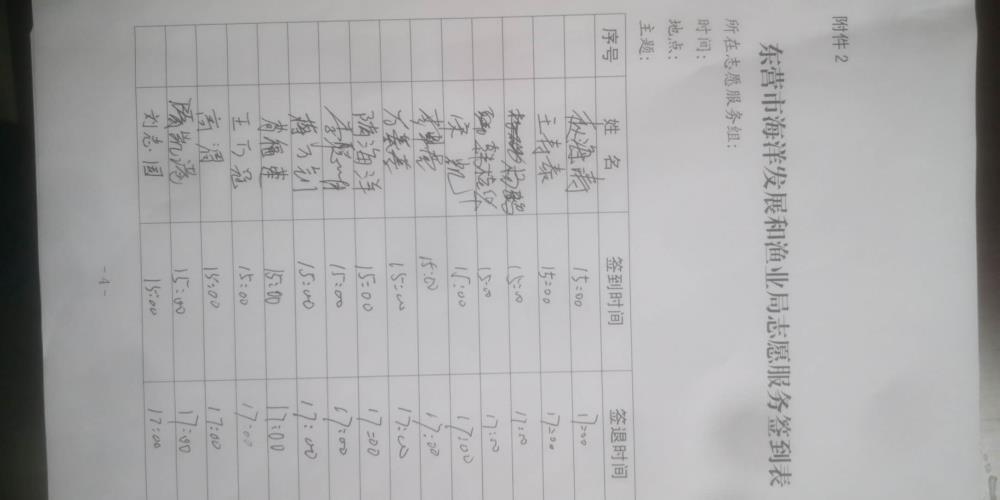 附件2
东营市海洋发展和渔业局志愿服务签到表
所在志愿服务组:
时间:
地点:
主题:
序号 姓名 签到时间 签退时间
海南 15:00 17:00
王春森 15:00 17:00
杨鹏 15:00 17:00
韩桂 15:00 17:00
凯 15:00 17:00
李 15:00 17:00
15:00 17:00
隋海洋 15:00 17:00
李聪 15:00 17:00
梅 15:00 17:00
肖福建 15:00 17:00
王 15:00 17:00
高渭 15:00 17:00
隋凯 15:00 17:00
刘志国 15:00 17:00
-4-